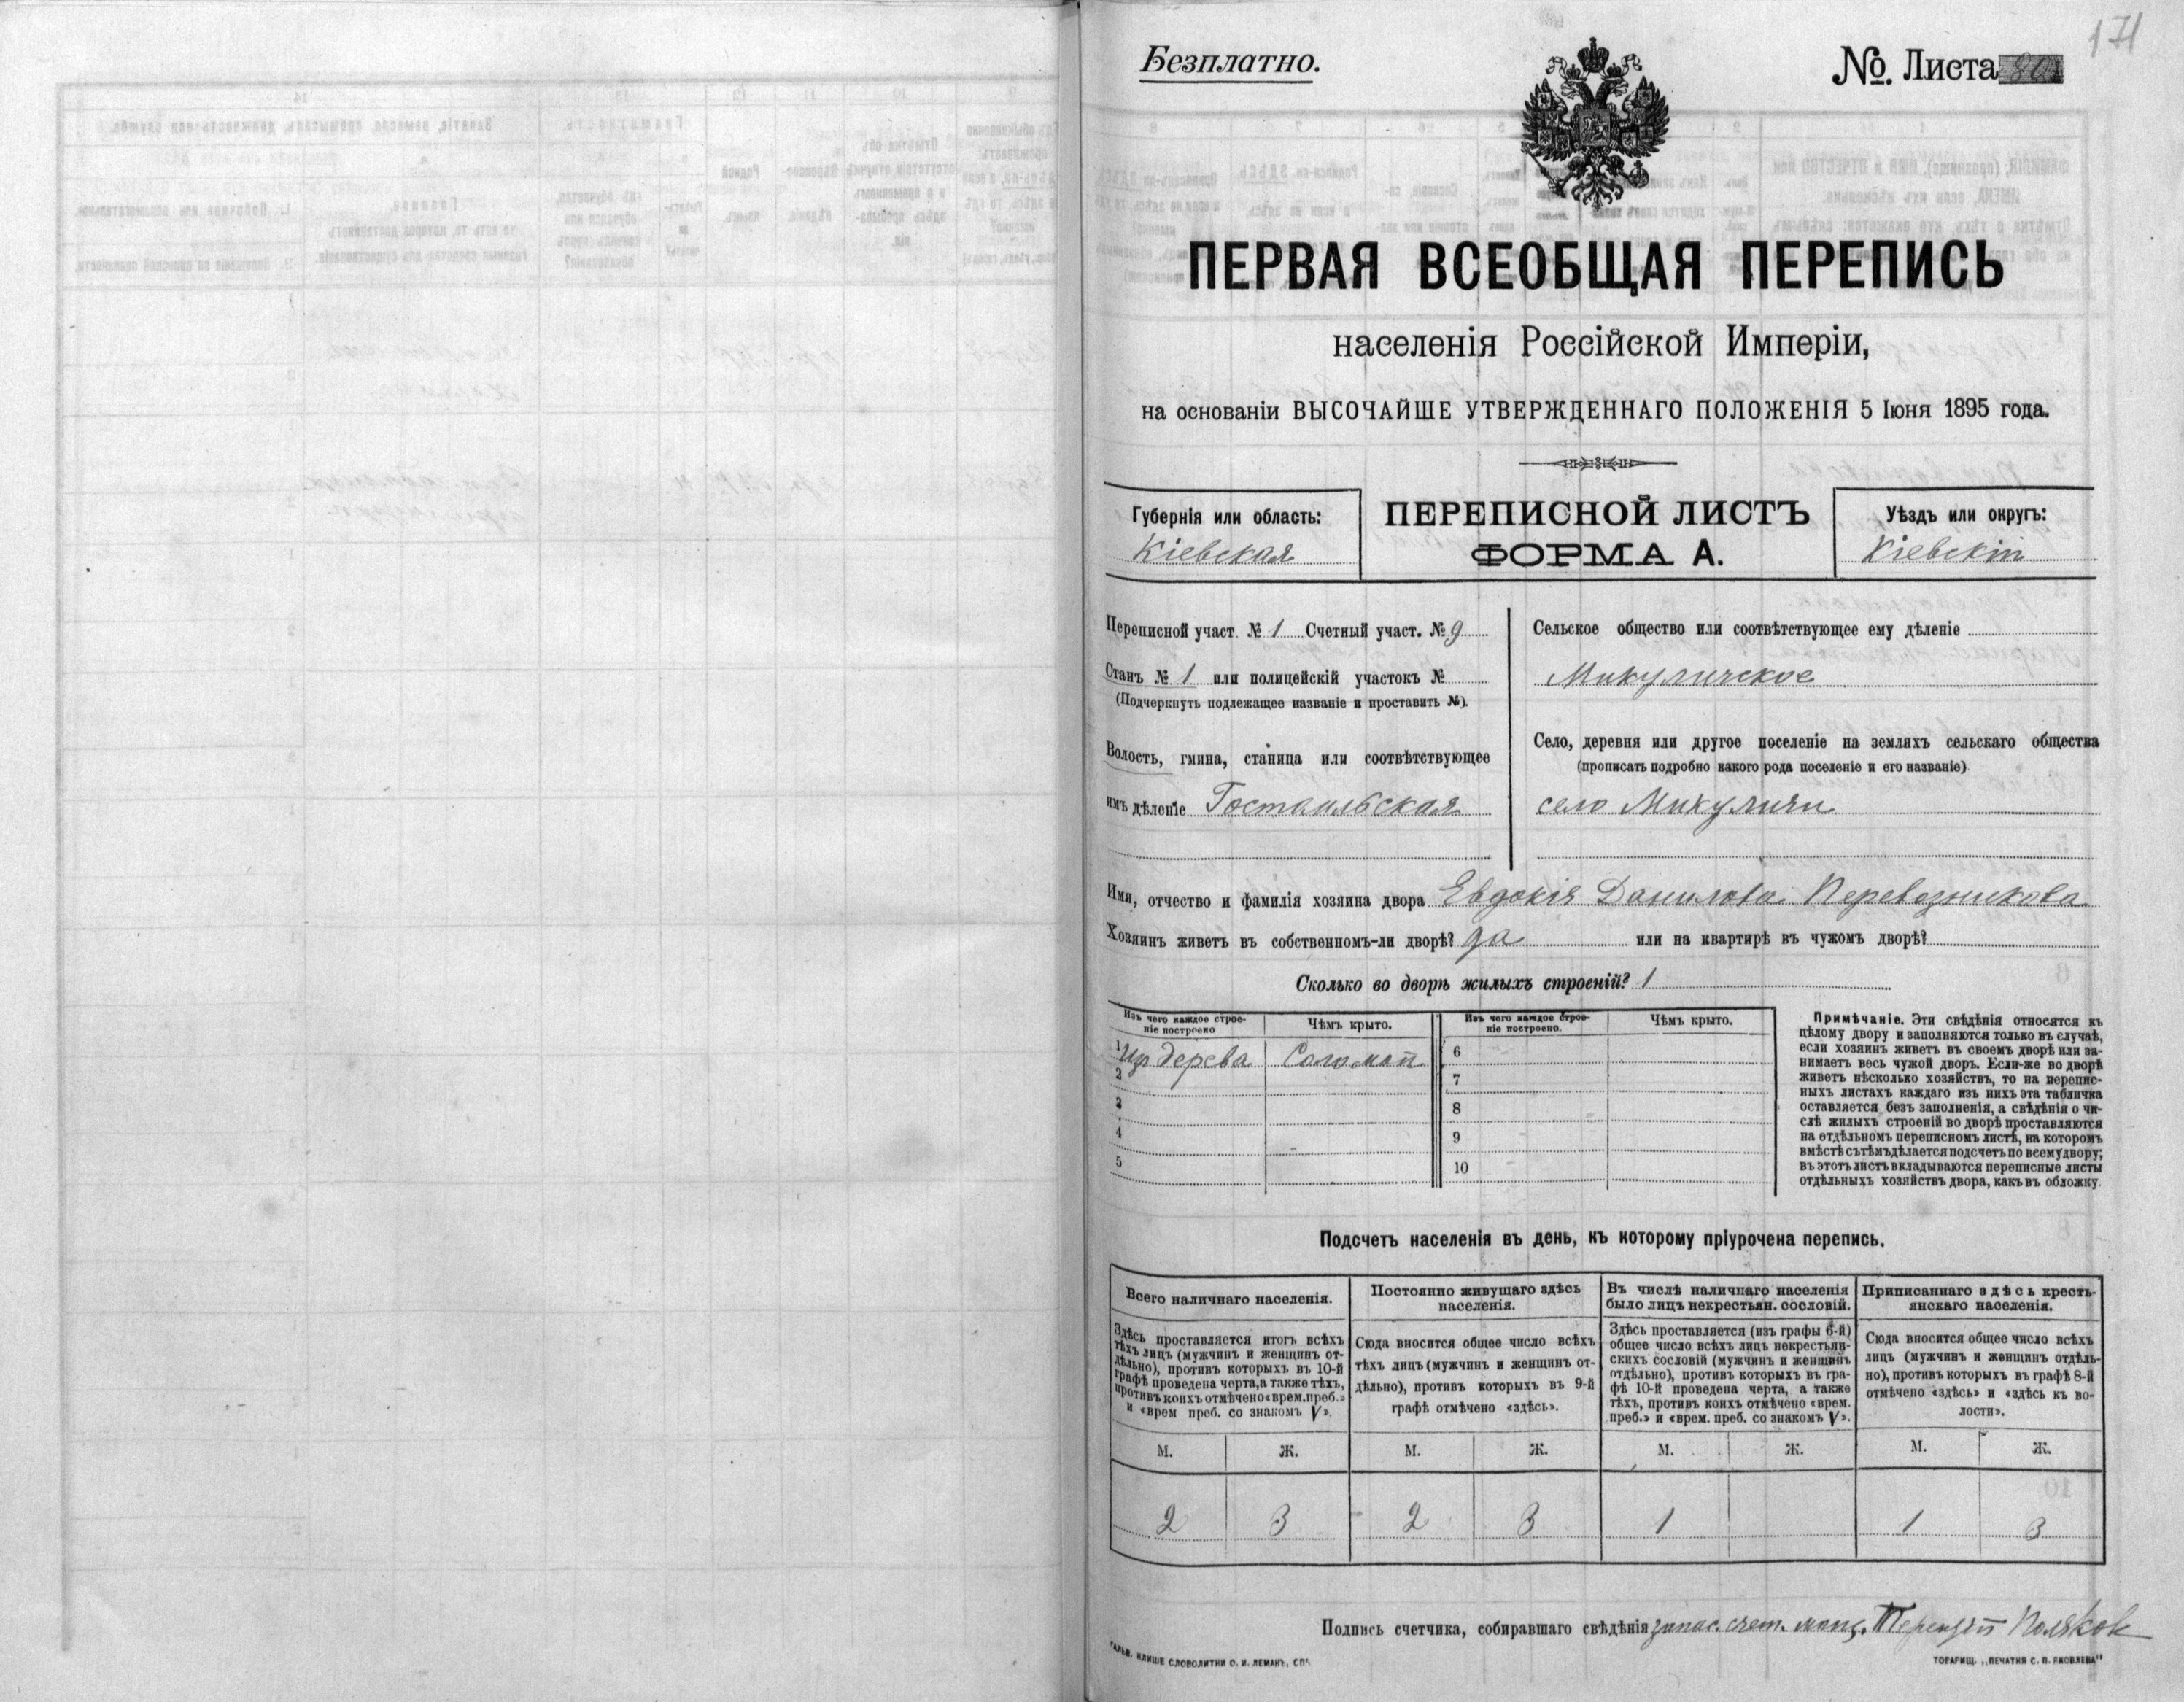 171
Безплатно.
№. Листа 80
ПЕРВАЯ ВСЕОБЩАЯ ПЕРЕПИСЬ
населенія Россійской Имперіи,
на основаніи ВЫСОЧАЙШЕ УТВЕРЖДЕННАГО ПОЛОЖЕНІЯ 5 Іюня 1895 года.
Губернія или область:
Кіевская
ПЕРЕПИСНОЙ ЛИСТЪ
ФОРМА А.
Уѣздъ или округъ:
Кіевскій
Переписной участ. № 1 Счетный участ. № 9
Станъ № 1 или полицейскій участокъ №
(Подчеркнуть подлежащее названіе и проставить №).
Волость, гмина, станица или соотвѣтствующее
имъ дѣленіе Гостомльская
Сельское общество или соотвѣтствующее ему дѣленіе
Микуличское
Село, деревня или другое поселеніе на земляхъ сельскаго общества
(прописать подробно какого рода поселеніе и его названіе)
село Микуличи
Имя, отчество и фамилія хозяина двора Евдокія Данилова Перевозникова
Хозяинъ живетъ въ собственномъ-ли дворѣ? да или на квартирѣ въ чужомъ дворѣ?
Сколько во дворѣ жилыхъ строеній? 1
Изъ чего каждое строе-
ніе построено
Чѣмъ крыто.
Изъ чего каждое строе-
ніе построено.
Чѣмъ крыто.
1 Из дерева Соломой 6
2 7
3 8
4 9
5 10
Примѣчаніе. Эти свѣдѣнія относятся къ
цѣлому двору и заполняются только въ случаѣ,
если хозяинъ живетъ въ своемъ дворѣ или за-
нимаетъ весь чужой дворъ. Если-же во дворѣ
живетъ нѣсколько хозяйствъ, то на перепис-
ныхъ листахъ каждаго изъ нихъ эта табличка
оставляется безъ заполненія, а свѣдѣнія о чи-
слѣ жилыхъ строеній во дворѣ проставляются
на отдѣльномъ переписномъ листѣ, на которомъ
вмѣстѣ съ тѣмъ дѣлается подсчетъ по всему двору;
въ этотъ листъ вкладываются переписные листы
отдѣльныхъ хозяйствъ двора, какъ въ обложку.
Подсчетъ населенія въ день, къ которому пріурочена перепись.
Всего наличнаго населенія.
Здѣсь проставляется итогъ всѣхъ
тѣхъ лицъ (мужчинъ и женщинъ от-
дѣльно), противъ которыхъ въ 10-й
графѣ проведена черта, а также тѣхъ,
противъ коихъ отмѣчено «врем. преб.»
и «врем преб. со знакомъ V».
Постоянно живущаго здѣсь
населенія.
Сюда вносится общее число всѣхъ
тѣхъ лицъ (мужчинъ и женщинъ от-
дѣльно), противъ которыхъ въ 9-й
графѣ отмѣчено «здѣсь».
Въ числѣ наличнаго населенія
было лицъ некрестьян. сословій.
Здѣсь проставляется (изъ графы 6-й)
общее число всѣхъ лицъ некрестьян-
скихъ сословій (мужчинъ и женщинъ
отдѣльно), противъ которыхъ въ гра-
фѣ 10-й проведена черта, а также
тѣхъ, противъ коихъ отмѣчено «врем.
преб.» и «врем. преб. со знакомъ V».
Приписаннаго здѣсь кресть-
янскаго населенія.
Сюда вносится общее число всѣхъ
лицъ (мужчинъ и женщинъ отдѣль-
но), противъ которыхъ въ графѣ 8-й
отмѣчено «здѣсь» и «здѣсь къ во-
лости».
М. Ж. М. Ж. М. Ж. М. Ж.
2 3 2 3 1 1 3
Подпись счетчика, собиравшаго свѣдѣнія запас. счет. Терентій Поляков
ГАЛЬВ. КЛИШЕ СЛОВОЛИТНИ О. И. ЛЕМАНЪ, СПБ.
ТОВАРИЩ. „ПЕЧАТНЯ С. П. ЯКОВЛЕВА"